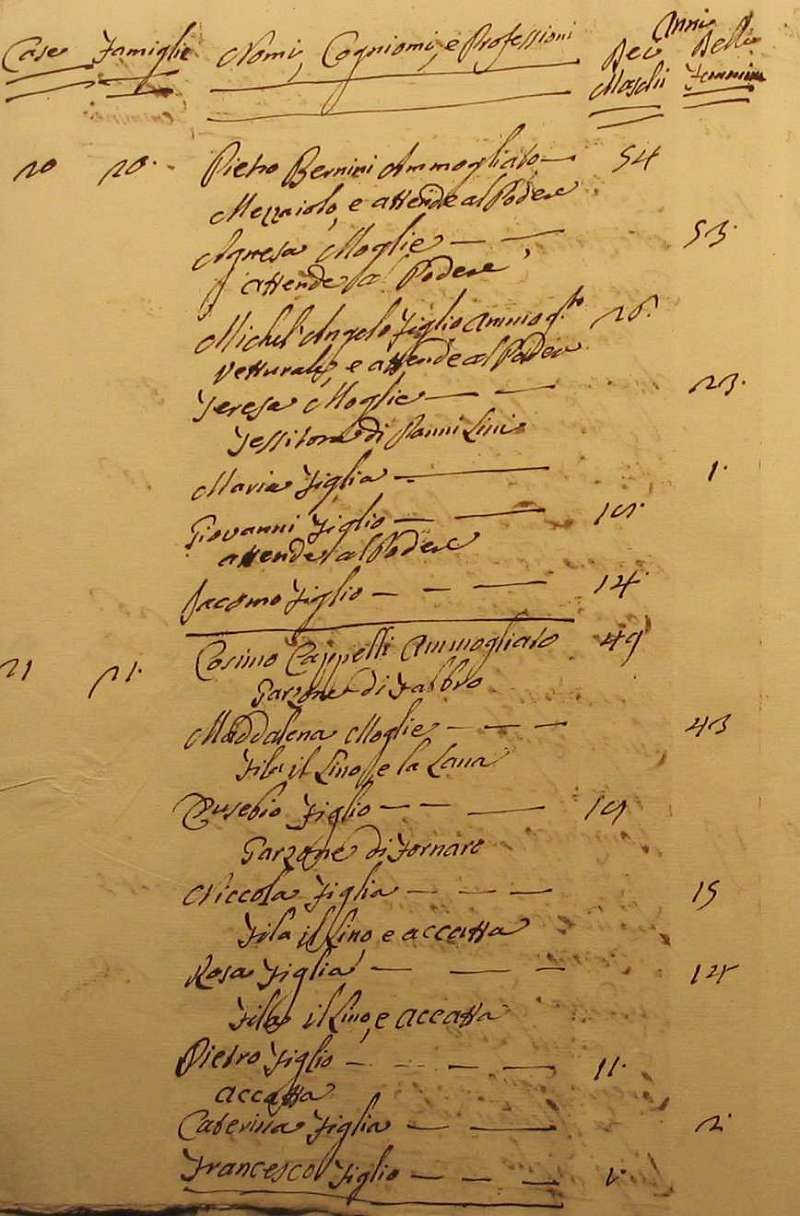 Case Famiglie Nomi, Cogniomi, e Professioni Anni
Dei Delle
Maschi Femmine
20 20. Pietro Bernini Ammogliato 54
Mezzaiolo, e attende al Podere
Agnesa Moglie 53.
attende al Podere
Michel'Angelo Figlio Ammog.to 26.
Vetturale, e attende al Podere
Teresa Moglie 23.
Tessitora di Panni Lini
Maria Figlia 1.
Giovanni Figlio
attende al Podere
Jacomo Figlio 14.
21 21. Cosimo Cappelli Ammogliato 49
Garzone di Fabbro
Maddalena Moglie 43
Fila il Lino e la Lana
Eusebio Figlio 19
Garzone di Fornaro
Niccola Figlia 15
Fila il Lino e accatta
Rosa Figlia 12
Fila il Lino, e accatta
Pietro Figlio 11.
accatta
Caterina Figlia 2.
Francesco Figlio